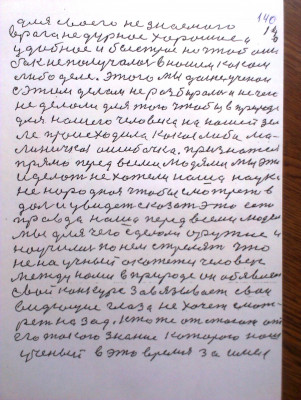 140
для моего не знаемого
врага не дурное хорошее
удобное и быстрое но чтобы они
так не получалося в нашем каком
либо деле. Этого мы
с этим делом не разбирались и нечего
не делали для того чтобы в природе
для нашего человека на нашей зем
ле происходила какая либо ма
леничкая ошибочка. признатся
прямо перед всеми людями мы это
делать не хотели наша наука
не народная чтобы смотреть в
дол и увидет сказат это есть
правда наша перед всеми людями
мы для чего сделали оружие и
научилися по нем стрелят что
не научный скажет человек
между нами в природе он обявляет
свой конкурс завязывает свои
видющие глаза не хочет смот
рет назад. Кто же
его такого знание которого наш
ученый в это время за имел